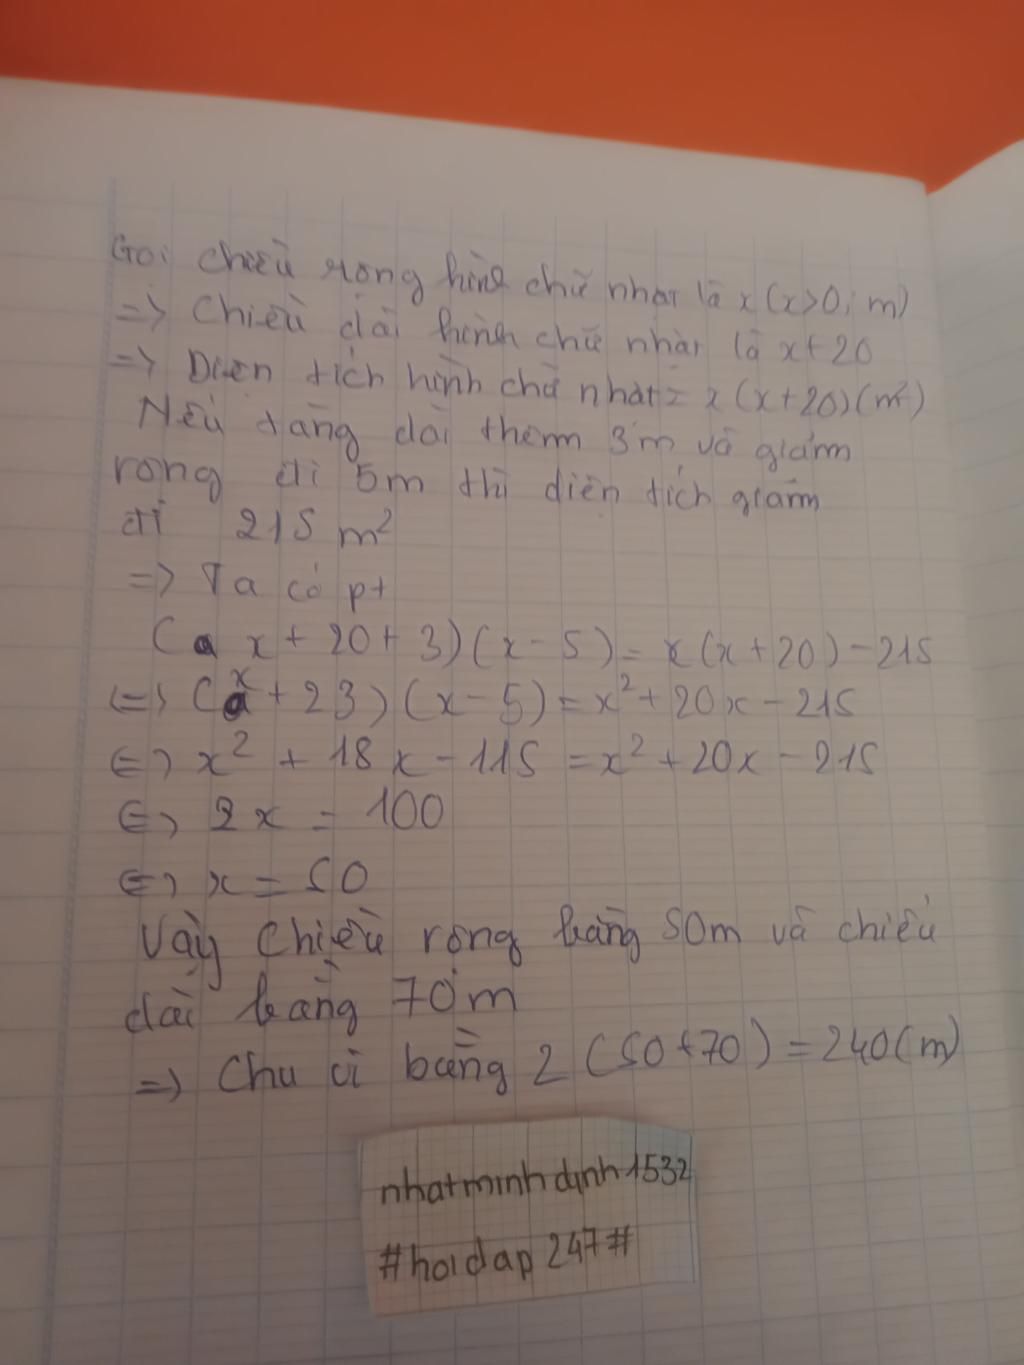 Gọi chiều rộng hình chữ nhật là x (x>0; m)
=> Chiều dài hình chữ nhật là x+20
=> Diện tích hình chữ nhật = x(x+20)(m²)
Nếu tăng dài thêm 3m và giảm
rộng đi 5m thì diện tích giảm
đi 215 m²
=> Ta có pt
(x+20+3)(x-5)=x(x+20)-215
<=> (x+23)(x-5)=x²+20x-215
<=> x²+18x-115=x²+20x-215
<=> 2x=100
<=> x=50
Vậy chiều rộng bằng 50m và chiều
dài bằng 70m
=> Chu vi bằng 2(50+70)=240(m)
nhatminhdinh1532
#hoidap247#